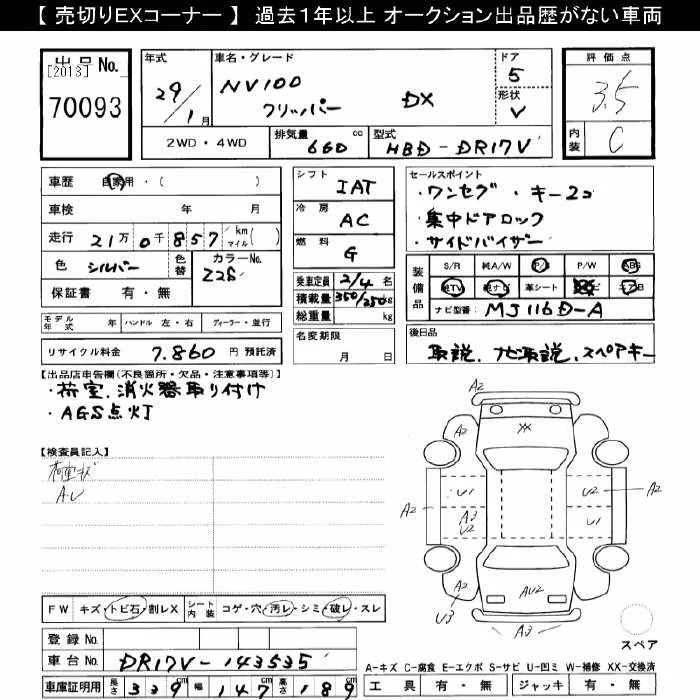 【 売切りEXコーナー 】 過去1年以上 オークション出品歴がない車両
出品 No.
[2013]
70093
年式
29/1月
車名・グレード
NV100
クリッパー DX
ドア
5
形状
V
評価点
3.5
内装
C
2WD・4WD
排気量 660 cc
型式 HBD-DR17V
車歴 自家用・( )
車検 年 月
走行 21万0千857 km マイル( )
色 シルバー
色替
カラーNo. Z2S
保証書 有・無
モデル年式 年 ハンドル 左・右 ディーラー・並行
リサイクル料金 7.860 円 預託済
シフト IAT
冷房 AC
燃料 G
乗車定員 2/4名
積載量 350/250kg
総重量 kg
名変期限
月 日
セールスポイント
・ワンセグ ・キー2コ
・集中ドアロック
・サイドバイザー
装備品
S/R 純A/W P/S P/W ABS
純TV 純ナビ 革シート
ナビ型番: MJ116D-A
後日品
取説、ナビ取説、スペアキー
【出品店申告欄(不良箇所・欠品・注意事項等)】
・荷室、消火器取り付け
・AGS点灯
【検査員記入】
A2
A2
XX
A2
A2
U1
U2
A2
A2
A3
U2
U1
A2
U3
AU2
A2
A3
スペア
FW キズ・トビ石・割レX
シート内装 コゲ・穴・汚レ・シミ・破レ・スレ
登録 No.
車台 No. DR17V-143535
車庫証明用 長さ 339cm 幅 147cm 高さ 189cm
A-キズ C-腐食 E-エクボ S-サビ U-凹ミ W-補修 XX-交換済
工具 有・無 ジャッキ 有・無